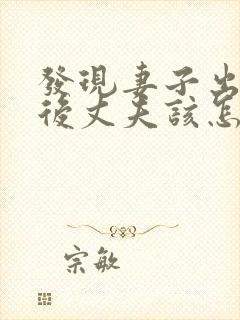 發現妻子出
後丈夫該怎
宗敏